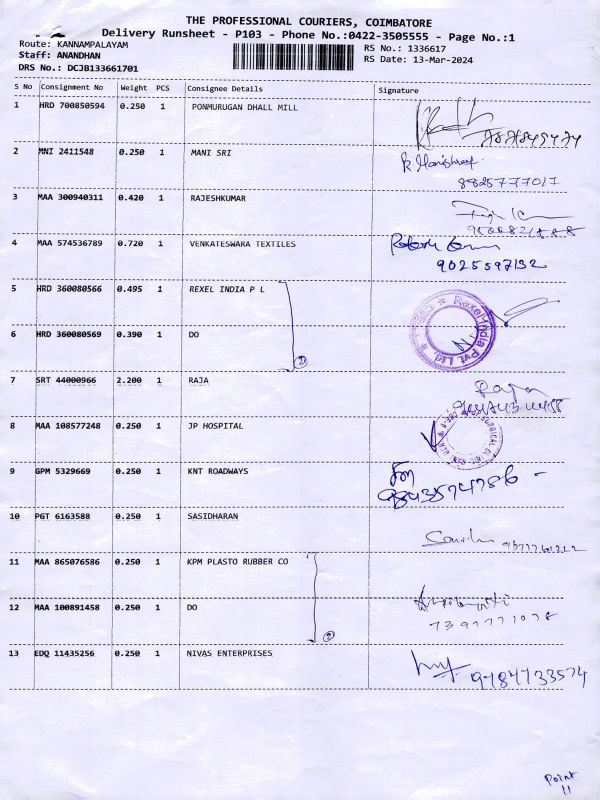 THE PROFESSIONAL COURIERS, COIMBATORE
Delivery Runsheet - P103 - Phone No.:0422-3505555 - Page No.:1
Route: KANNAMPALAYAM
Staff: ANANDHAN
DRS No.: DCJB133661701
RS No.: 1336617
RS Date: 13-Mar-2024
S No Consignment No Weight PCS Consignee Details Signature
1 HRD 700850594 0.250 1 PONMURUGAN DHALL MILL
2 MNI 2411548 0.250 1 MANI SRI
8825777017
3 MAA 300940311 0.420 1 RAJESHKUMAR
4 MAA 574536789 0.720 1 VENKATESWARA TEXTILES
9025597132
5 HRD 360080566 0.495 1 REXEL INDIA P L
6 HRD 360080569 0.390 1 DO
7 SRT 44000966 2.200 1 RAJA
Raja
8 MAA 108577248 0.250 1 JP HOSPITAL
9 GPM 5329669 0.250 1 KNT ROADWAYS
9843574786
10 PGT 6163588 0.250 1 SASIDHARAN
11 MAA 865076586 0.250 1 KPM PLASTO RUBBER CO
12 MAA 100891458 0.250 1 DO
13 EDQ 11435256 0.250 1 NIVAS ENTERPRISES
9784733574
Point
11